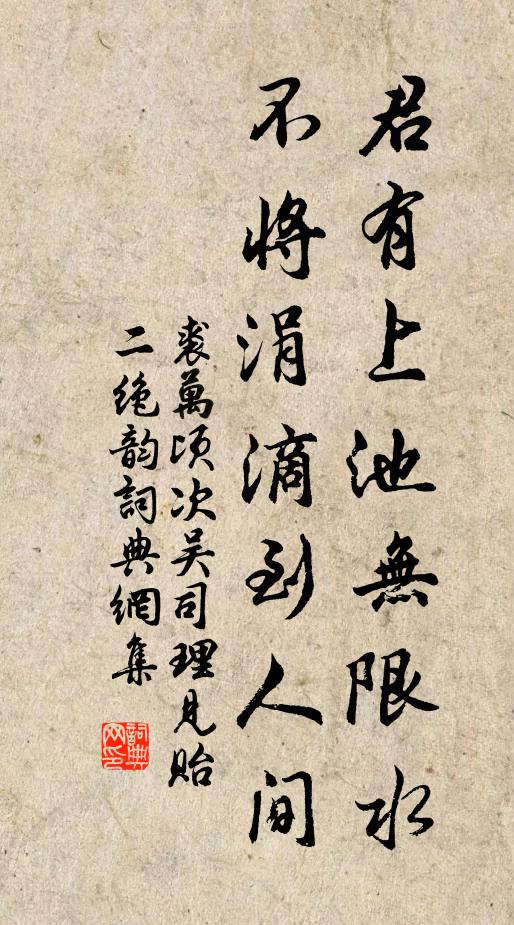 君有上池無限水
不將涓滴到人間
裘萬頃次吳司理見貽
二絕韵詞典網集
詞典
网印